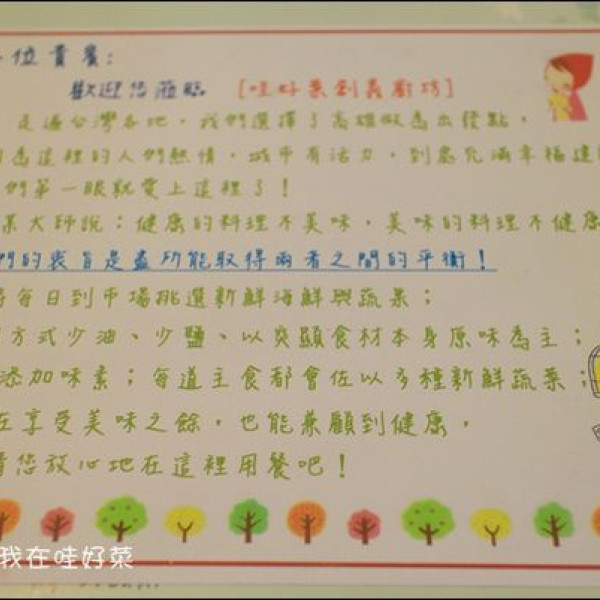 位貴賓:
歡迎您蒞臨 [哇好菜創義廚坊]
走遍台灣各地，我們選擇了高雄做為出發點，
為這裡的人們熱情，城市有活力，到處充滿幸福建
們第一眼就愛上這裡了！
某大師說：健康的料理不美味，美味的料理不健康
們的衷旨是盡所能取得兩者之間的平衡！
每日到市場挑選新鮮海鮮與蔬果；
方式少油、少鹽、以突顯食材本身原味為主；
添加味素；每道主食都會佐以多種新鮮蔬菜；
在享受美味之餘，也能兼顧到健康，
請您放心地在這裡用餐吧！
我在哇好菜